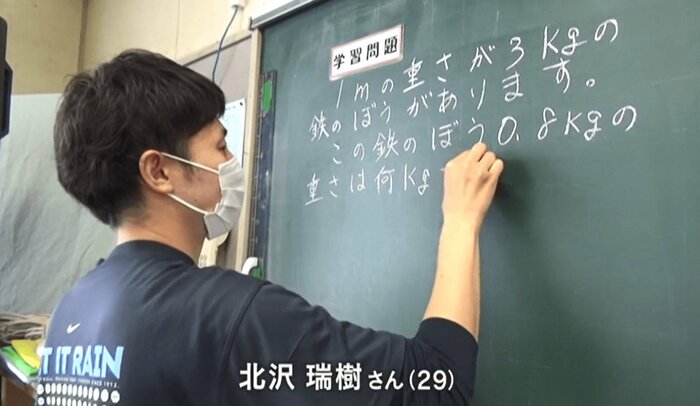 学習問題
1mの重さが3kgの
鉄のぼうがあります。
この鉄のぼう0.8kgの
重さは何kg
IT RAIN
北沢 瑞樹さん(29)